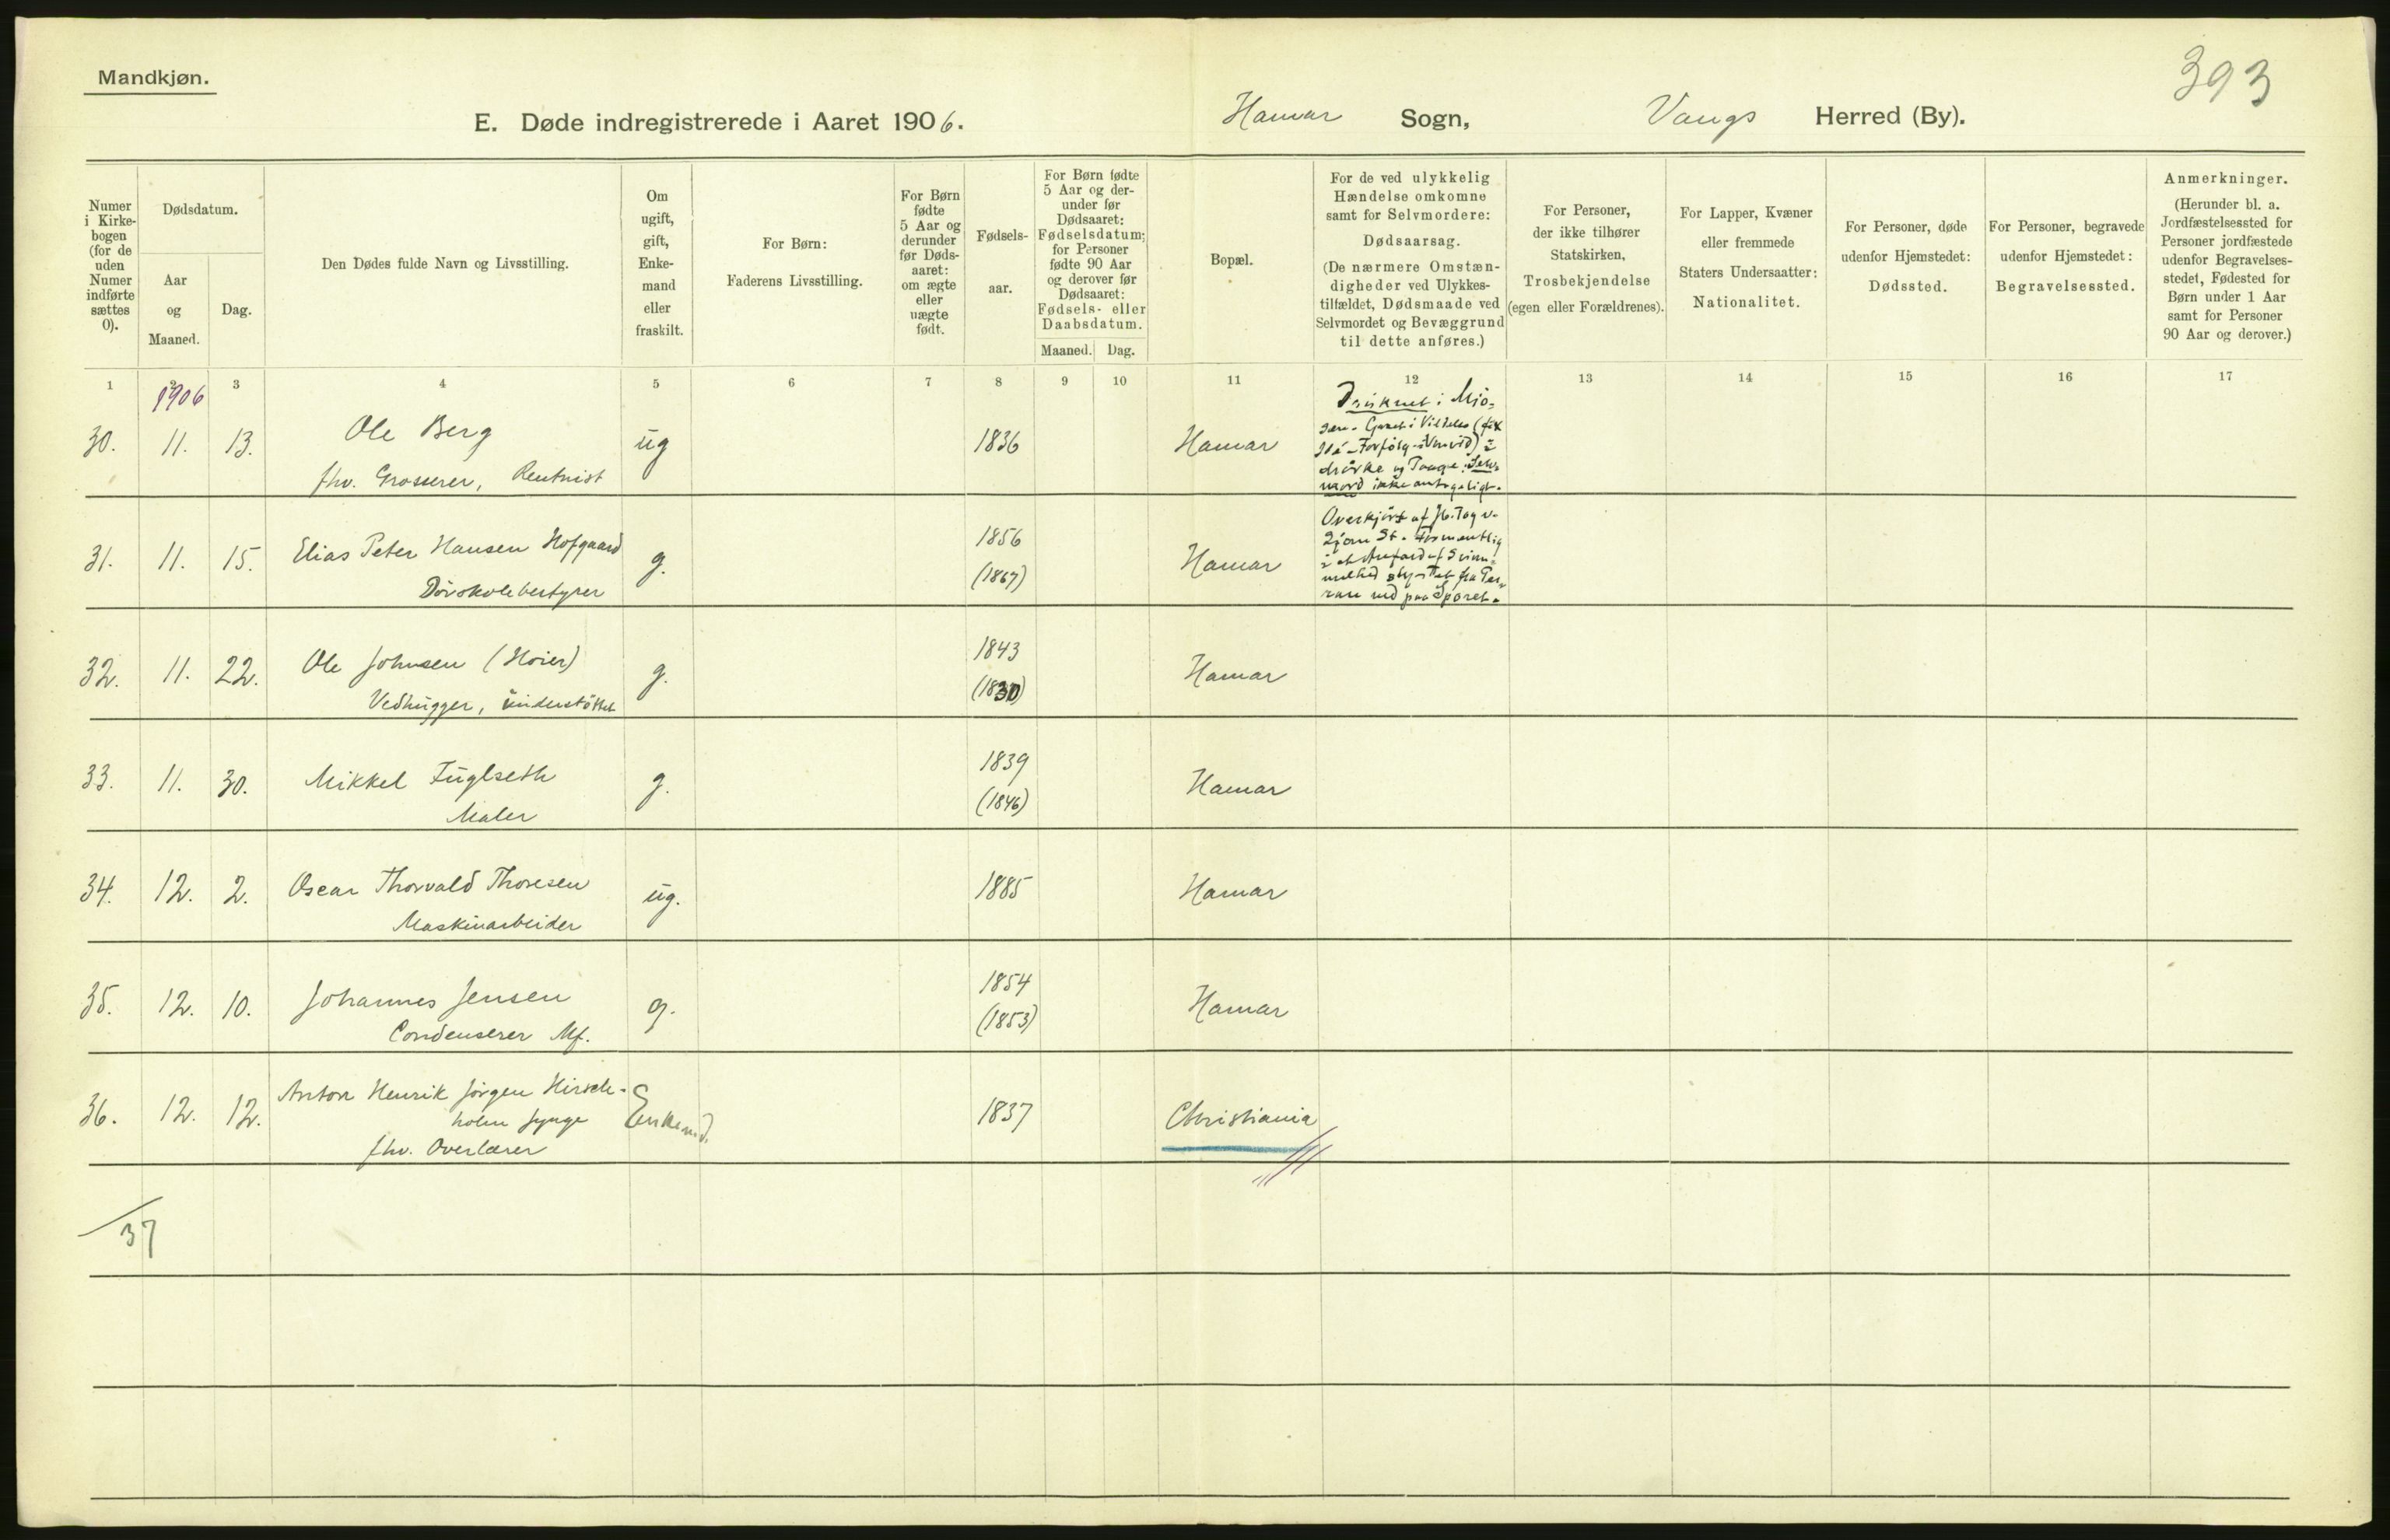 Mandkjøn.
393
E. Døde indregistrerede i Aaret 1906. Hamar Sogn, Vangs Herred (By).
Numer
i Kirke-
bogen
(for de
uden
Numer
indførte
sættes
0).
Dødsdatum.
Aar
og
Maaned.
Dag.
Den Dødes fulde Navn og Livsstilling.
Om
ugift,
gift,
Enke-
mand
eller
fraskilt.
For Børn:
Faderens Livsstilling.
For Børn
fødte
5 Aar og
derunder
før Døds-
aaret:
om ægte
eller
uægte
født.
Fødsels-
aar.
For Børn fødte
5 Aar og der-
under før
Dødsaaret:
Fødselsdatum;
for Personer
fødte 90 Aar
og derover før
Dødsaaret:
Fødsels- eller
Daabsdatum.
Maaned. Dag.
Bopæl.
For de ved ulykkelig
Hændelse omkomne
samt for Selvmordere:
Dødsaarsag.
(De nærmere Omstæn-
digheder ved Ulykkes-
tilfældet, Dødsmaade ved
Selvmordet og Bevæggrund
til dette anføres.)
For Personer,
der ikke tilhører
Statskirken,
Trosbekjendelse
(egen eller Forældrenes).
For Lapper, Kvæner
eller fremmede
Staters Undersaatter:
Nationalitet.
For Personer, døde
udenfor Hjemstedet:
Dødssted.
For Personer, begravede
udenfor Hjemstedet:
Begravelsessted.
Anmerkninger.
(Herunder bl. a.
Jordfæstelsessted for
Personer jordfæstede
udenfor Begravelses-
stedet, Fødested for
Børn under 1 Aar
samt for Personer
90 Aar og derover.)
1 2 3 4 5 6 7 8 9 10 11 12 13 14 15 16 17
1906
30. 11. 13. Ole Berg ug 1836 Hamar
fhv. Grosserer, Rentnist
Druknet i Mjö-
sen. Gaaet i Vildelse
Forfölg
mörke og Taage. Selv-
mord ikke antageligt.
31. 11. 15. Elias Peter Hansen Hofgaard g. 1856 Hamar
Dövskolebestyrer (1867)
Overkjört af Tog v.
St. Formentlig
i et Anfald af Svim-
melhed styrtet fra Per-
ron ned paa Sporet.
32. 11. 22. Ole Johnsen (Hoier) g. 1843 Hamar
Vedhugger, understöttet (1830)
33. 11. 30. Mikkel Fuglseth g. 1839 Hamar
Maler (1846)
34. 12. 2. Oscar Thorvald Thoresen ug. 1885 Hamar
Maskinarbeider
35. 12. 10. Johannes Jensen g. 1854 Hamar
Condenserer Mf. (1853)
36. 12. 12. Anton Henrik Jörgen Hirsch- Enkemd. 1837 Christiania
holm Synge
fhv. Overlærer
37